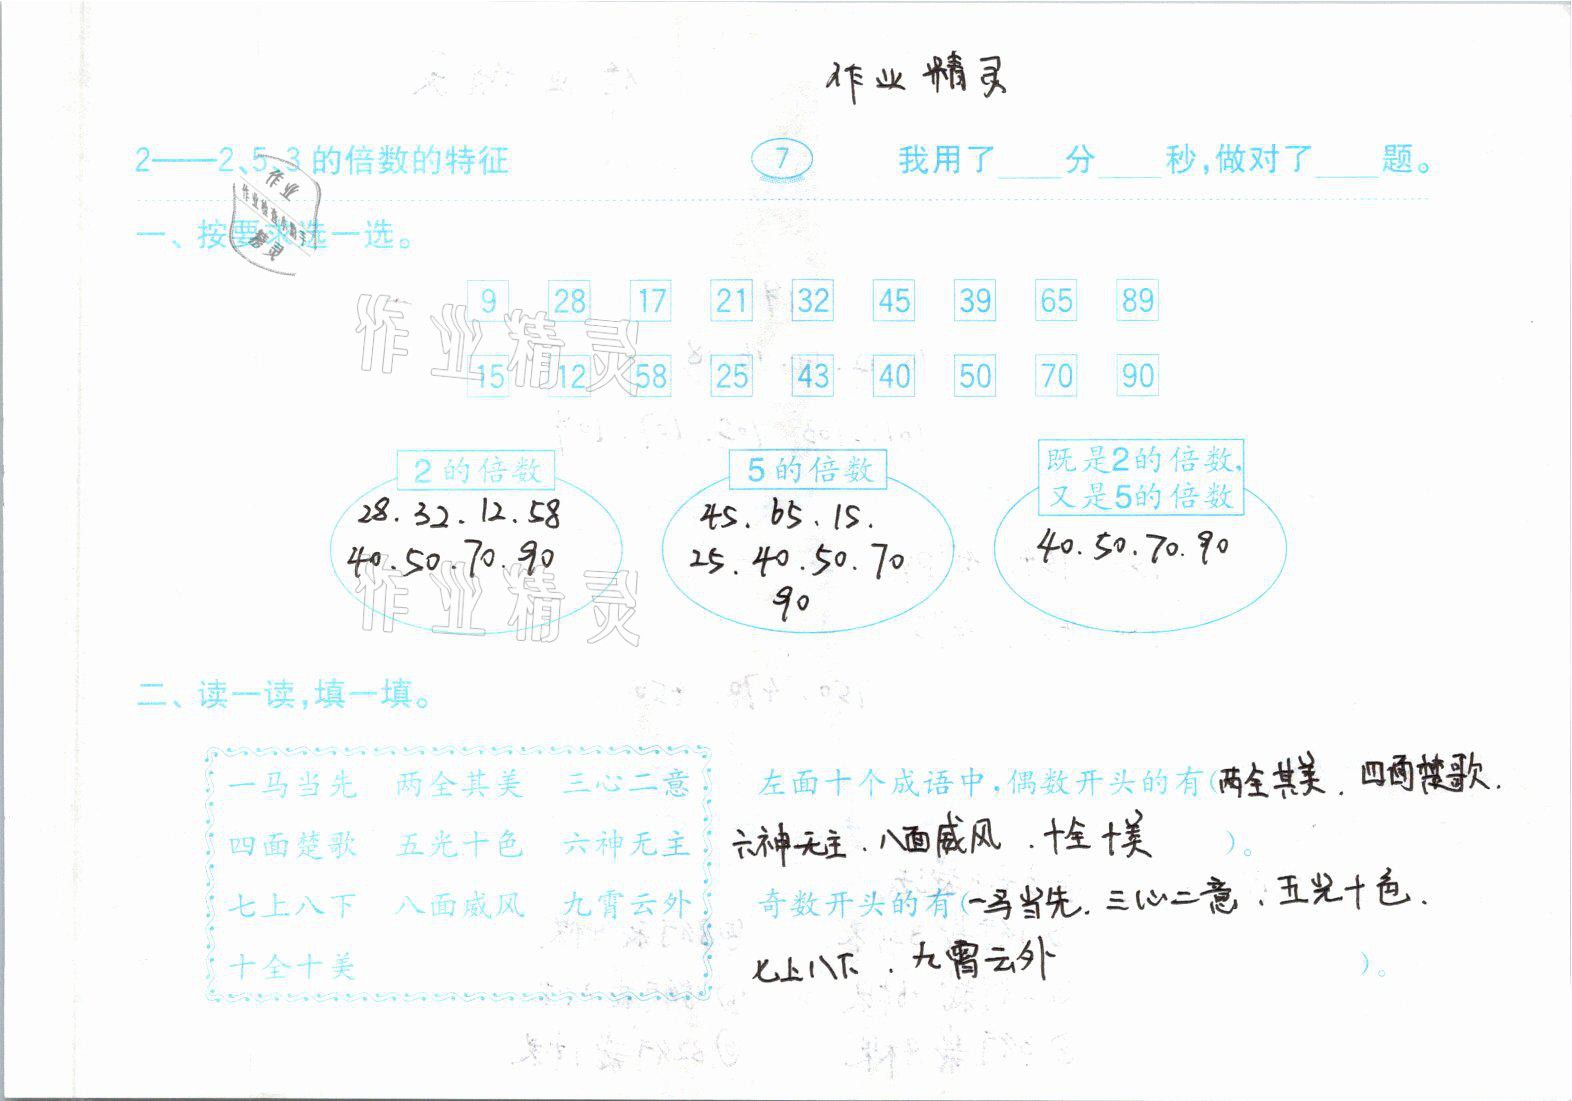 作业精灵
2——2、5、3的倍数的特征 7 我用了____分____秒,做对了____题。
作业
作业检查小助手
精灵
一、按要求选一选。
9 28 17 21 32 45 39 65 89
作业精灵
15 12 58 25 43 40 50 70 90
2的倍数
28.32.12.58
40.50.70.90
5的倍数
45.65.15.
25.40.50.70
90
既是2的倍数,
又是5的倍数
40.50.70.90
作业精灵
二、读一读,填一填。
一马当先 两全其美 三心二意
四面楚歌 五光十色 六神无主
七上八下 八面威风 九霄云外
十全十美
左面十个成语中,偶数开头的有(两全其美.四面楚歌.
六神无主.八面威风.十全十美 )。
奇数开头的有(一马当先.三心二意.五光十色.
七上八下.九霄云外 )。